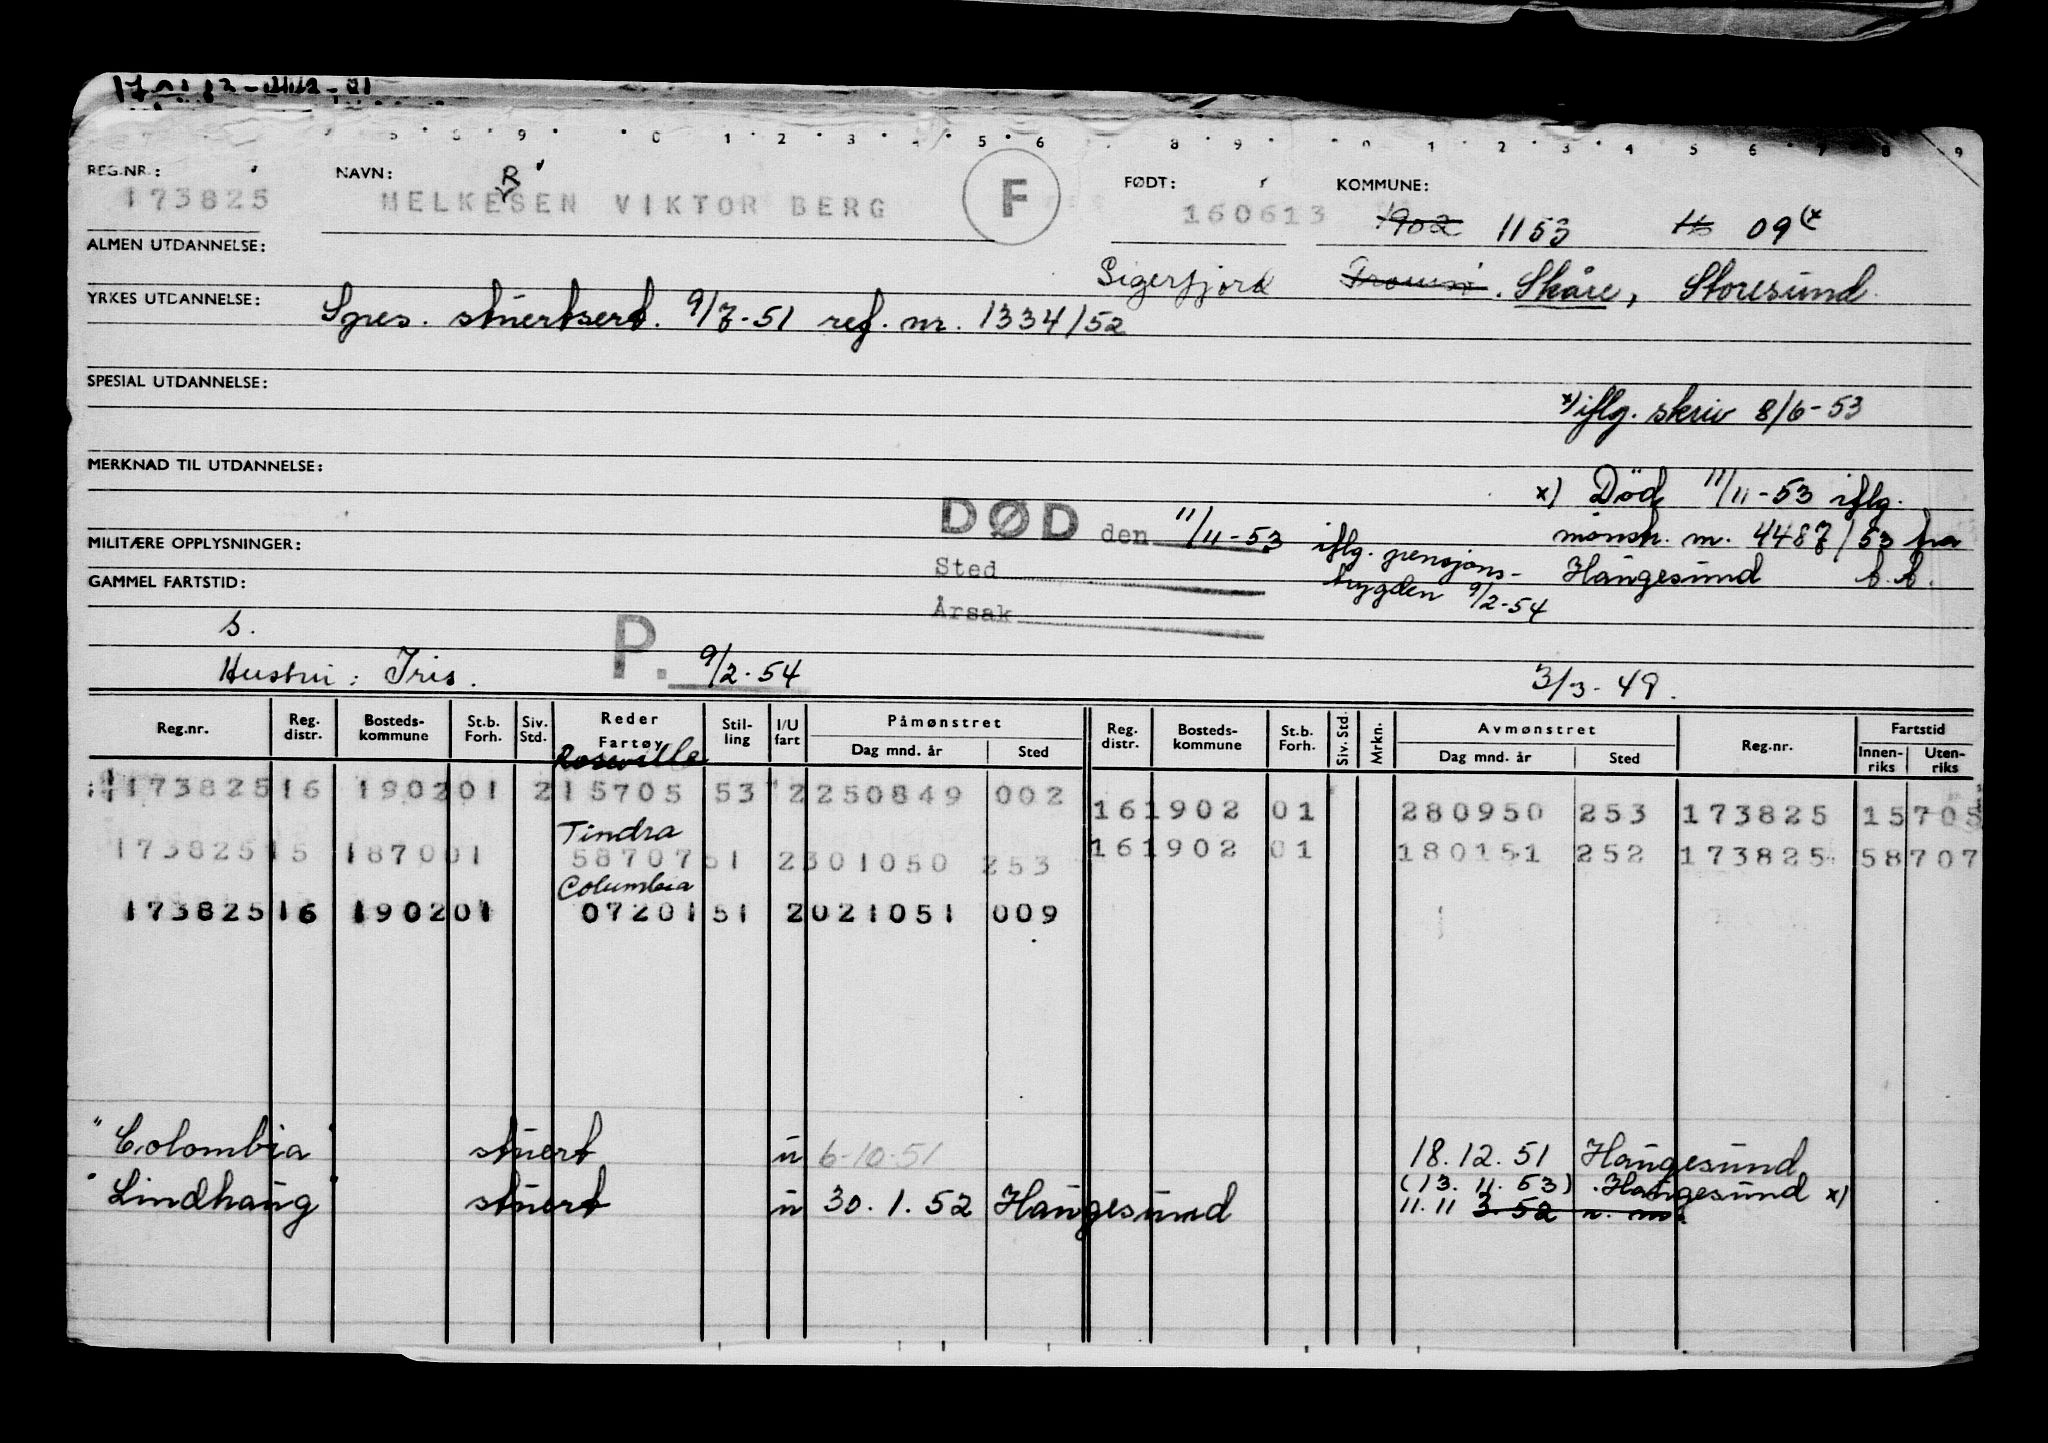 5 6 9 0 1 2 3 4 5 6 8 9 0 1 2 3 4 5 6 7 8 9
REG.NR.: NAVN: R FØDT: KOMMUNE:
173825 MELKESEN VIKTOR BERG F 160613 1902 1153 16 09 (x
ALMEN UTDANNELSE:
Sigerfjord Tromsø. Skåre, Storesund.
YRKES UTDANNELSE: Spes. stuertsert. 9/7-51 ref. nr. 1334/52
SPESIAL UTDANNELSE:
x) iflg. skriv 8/6-53
MERKNAD TIL UTDANNELSE:
x) Död 11/11-53 iflg.
DØD den 11/11-53 iflg. pensjons-
mønstr. nr. 4487/53 fra
MILITÆRE OPPLYSNINGER:
Sted trygden 9/2-54 Haugesund
GAMMEL FARTSTID:
Årsak
s.
Hustru: Iris. P. 9/2-54 3/3-49.
Reg.nr. Reg. distr. Bosteds-kommune St.b. Forh. Siv. Std. Reder Fartøy Stil-ling I/U fart Påmønstret Dag mnd. år Sted Reg. distr. Bosteds-kommune St.b. Forh. Siv. Std. Mrkn. Avmønstret Dag mnd. år Sted Reg.nr. Fartstid Innen-riks Uten-riks
Roseville
173825 16 1902 01 2 15705 53 2 250849 002 16 1902 01 280950 253 173825 15705
Tindra
173825 15 1870 01 58707 51 2 301050 253 16 1902 01 180151 252 173825 58707
Columbia
173825 16 1902 01 07201 51 2 021051 009
"Colombia" stuert u 6-10-51 18.12.51 Haugesund
(13.11.53) Haugesund x)
"Lindhaug" stuert u 30.1.52 Haugesund 11.11 3.52